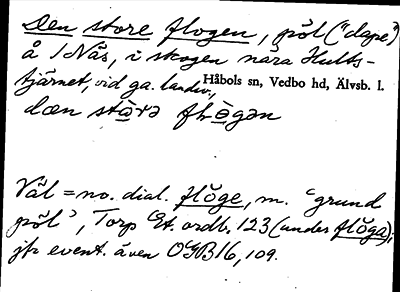 Den store flogen, pöl ("dape")
å 1 Nås, i skogen nära Hults-
tjärnet, vid ga. landsv., Håbols sn, Vedbo hd, Älvsb. l.
dæn stòrə flògən
Väl = no. dial. flöge, m. "grund
pöl", Torp Et. ordb. 123 (under flöga);
jfr event. även OGB 16, 109.